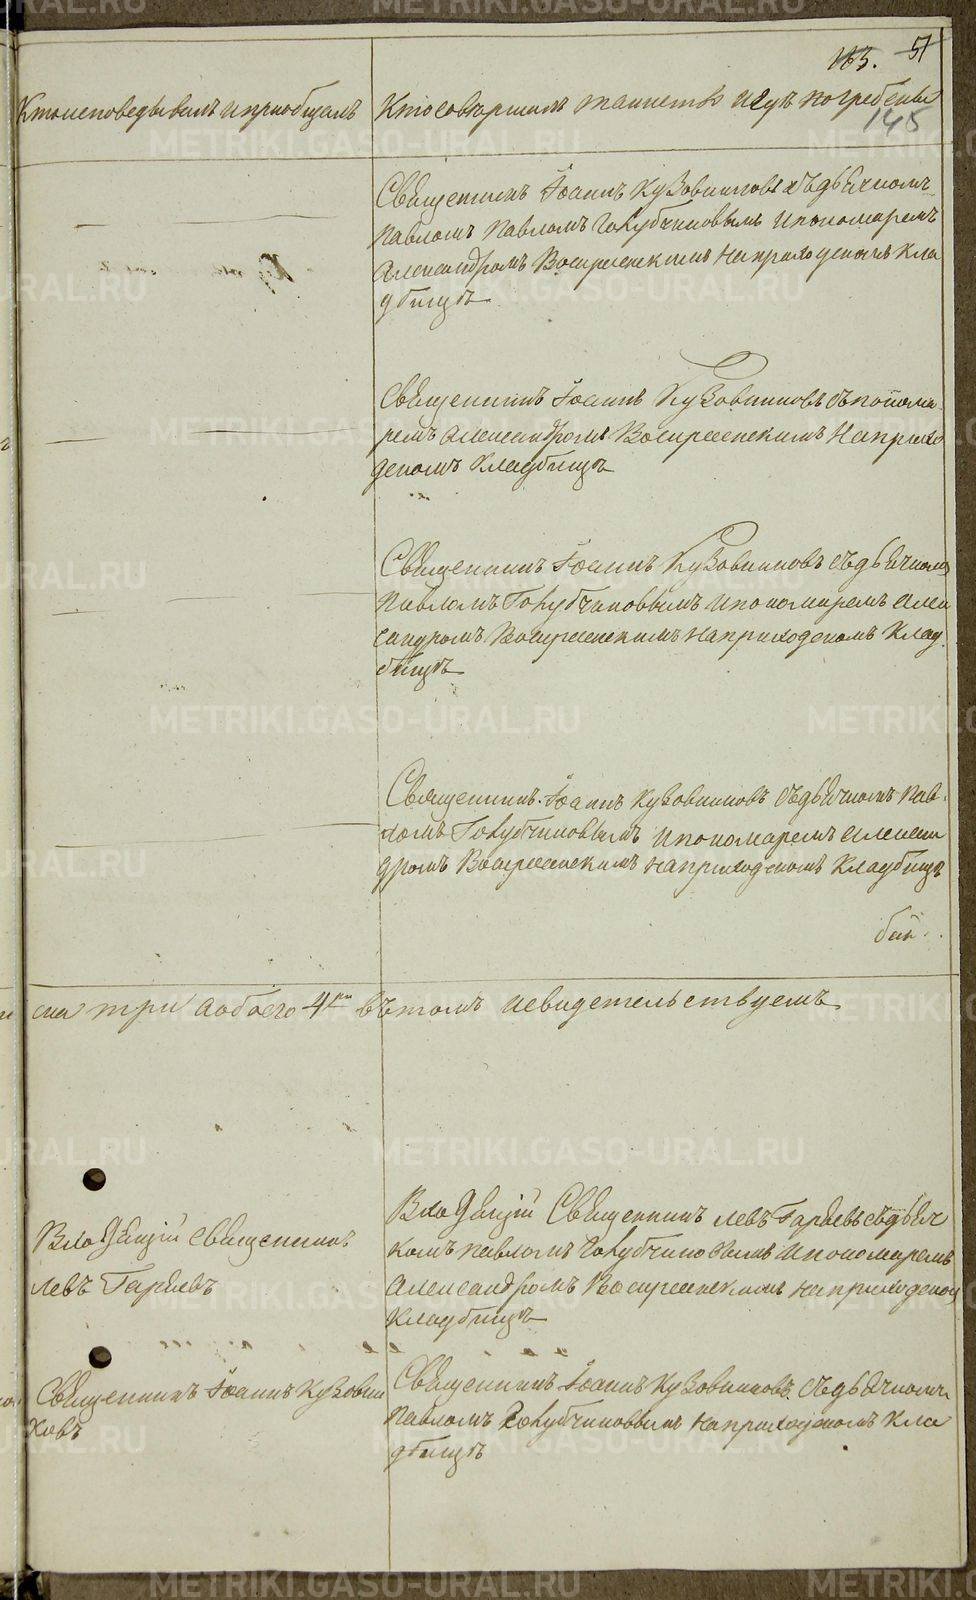 113. 51
145
Кто исповедывалъ и приобщалъ
Кто совершалъ таинство и гдѣ погребены
Священникъ Іоаннъ Кузовниковъ съ дьячкомъ
Павломъ Павломъ Голубчиковымъ и пономаремъ
Александромъ Воскресенскимъ на приходскомъ кла
дбищѣ
Священникъ Іоаннъ Кузовниковъ съ понома
ремъ Александромъ Воскресенскимъ на прихо
дскомъ кладбищѣ
Священникъ Іоаннъ Кузовниковъ съ дьячкомъ
Павломъ Голубчиковымъ и пономаремъ Алек
сандромъ Воскресенскимъ на приходскомъ клад
бищѣ
Священникъ Іоаннъ Кузовниковъ съ дьячкомъ Пав
ломъ Голубчиковымъ и пономаремъ Алексан
дромъ Воскресенскимъ на приходскомъ кладбищѣ
три а обоего 4 въ томъ и свидетельствуемъ
Священникъ
Левъ Гаряевъ
Священникъ Левъ Гаряевъ съ дьяч
комъ Павломъ Голубчиковымъ и пономаремъ
Александромъ Воскресенскимъ на приходском
кладбищѣ
Священникъ Іоаннъ Кузовни
ковъ
Священникъ Іоаннъ Кузовниковъ съ дьячкомъ
Павломъ Голубчиковымъ на приходскомъ кла
дбищѣ
METRIKI.GASO-URAL.RU